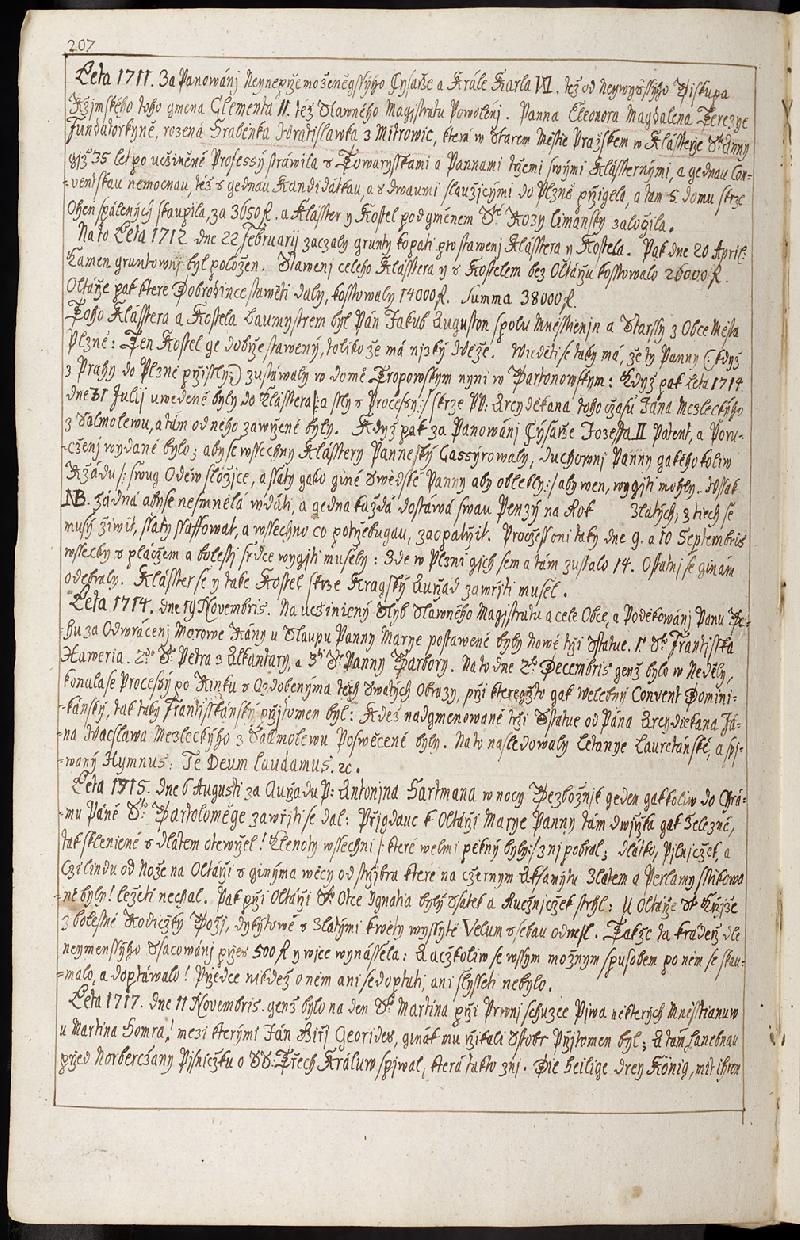 207
Leta 1711. Za Panowánj Neynepřemoženěgssýho Cysaře a Krále Karla VI. též od Neywyšssýho Biskupa
Ržjmského toho gmena Clementa 11. též Slawného Magistratu Powolenj. Panna Eleonora Magdalena Terezye
Fundatorkyně, rozená Hraběnka Wratislawka z Mitrowic, která w Starem Městie Pražskem w Klásteře Sté Anny
giž 35 let po učiněné Professý stráwila s Towaryškami a Pannami třemi swými Klásternými, a gednau Con-
-ventskau nemocnau, též s gednau Kandidátkau, a s dwaumi slaužjcými do Plzně přigela, a tam 5 domu skrze
Oheň spálených skaupila, za 3650 fl. a Klášter y Kostel pod gménem Sté Rozy Limanský založila.
Na to Leta 1712. dne 22 Februarij začaly grunty kopati pro stawenj Klástera y Kostela. Pak dne 20 April:
Kamen gruntownj byl položen. Stawenj celeho Klástera y s Kostelem bez Oltářu kosstowalo 26000 fl.
Oltáře pak které Dobrodincestawěti daly, kosstowaly 14000 fl. Summa 38000 fl.
Toho Klástera a Kostela Baumystrem byl Pán Jakub Auguston spolu Měsstěnjn a Starssý z Obce Města
Plzně: Ten Kostel ge dobře stawený, toliko že má njzký Swětl. Wěděti se taky má, že ty Panny (: když
z Prahy do Plzně přissly :) zustáwaly w domě Troporwským nynj w Bartonowským: Když pak Leta 1714
dne 31 Julij uwedené byly do Klástera /: a sly s Processý :/ skrze PP: Arcyděkana toho času Jána Mesleckýho
z Salmolewu, a tám od něho zawřené byly. Když pak za Panowánj Cysaře Jozefa II Patent, a Poru-
-čenj wydané bylo; aby se wssechny Klásstery Pannenský Cassyrowaly, duchownj Panny gakéhokoliw
Ržádu /: swug Oděw složjce, a ssaty gako giné Swětské Panny aby oblekly :/ aby wen, wygjti mohly. Wssak
NB. žádná aby se nesměla wdáti, a gedna každá dostáwá swau Penzý na Rok Zlatých, z tich se
musý žiwit, ssaty ssaffowat, a wssechno co potřebugau, zaopatřit. Pročež oni taky dne 9. a 10 Septembris
wssecky s pláčem a bolestj srdce wygjti musely: Zde w Plzni gich sem a tám zustalo 14. Ostatnj se ginám
odebraly. Klášter se y také Kostel skrze Kragský Auřad zawřjti musel.
Leta 1714. dne 19 Novembris. Na učiněný Slyb Slawného Magistratu a celé Obce, a Poděkowánj Panu Bo-
-hu za Odwrácenj Morowé Rány u Slaupu Panny Marye postawené byly nowé třj Statue. 1ª St. Frantisska
Xaweria. 2ª St Petra z Alkantary, a 3ª Sté Panny Barbory. Na to dne 2ª Decembris genž bylo w Neděly,
konala se Processý po Rinku s Ozdobenýma těch Swatých Obrazy, při kteregžto gak welebný Convent Domini-
-kánský, tak taky Frantisskánský přjtomen byl: Kdež nadgmenowané třj Statue od Pána Arcyděkana Já-
-na Wacslawa Mesleckýho z Salmolewu Poswěcené byly. Na to nasledowaly Letanye Lauretanské, a spj-
-waný Hymnus: Te Deum laudamus. ꝛc.
Leta 1715. dne 6 Augusti za Auřadu P: Antonjna Hartmana w nocy Bezbožnjk geden gakkoliw do Chrá-
-mu Páně St: Bartoloměge zawřjti se dal: Přigdauc k Oltáři Marye Panny tám dwjřka gak železné,
tak sklenicné s Dlátem otewřel! Klenoty wssechnj /: které welmi pěkný byly :/ z nj pobral; Dlátko, Pilničzek, a
Czulindu od Nože na Oltáři s ginýma wěcy odstřjbra které na czernym Aksamytu Zlatem a Perlamy sstikowa
-né byly! ležeti nechal. Pak při Oltáři St Otce Ignatia bylý Ssátek a Ručničzek strhl; U Oltáře St Křjže
z bolestné Rodičky Božj, dykytowé s Zlatými kwěty wyssyté Velum s sebau odnesl. Takže ta kradež dle
neymenssýho Ssacowánj přes 500 fl y wjce wynássela: A ačzkoliw se wssým možným spusobem po něm se skau-
-malo, a doptáwalo! Předce nikdež o něm ani se doptati, ani slysseti nebylo.
Leta 1717. dne 11 Novembris. genž bylo na den St Martina při Prwnj schuzce Piwa některých Měsstianuw
u Martina Homra, mezi kterými Ján Giřj Georides, gináč mu řjkali Sstobr Přjtomen byl; A tám hanebnau
před Norberczany Pjsničku o SS. Třech Králuw spjwal, která takto znj. Die heilige drey König, mit ihren